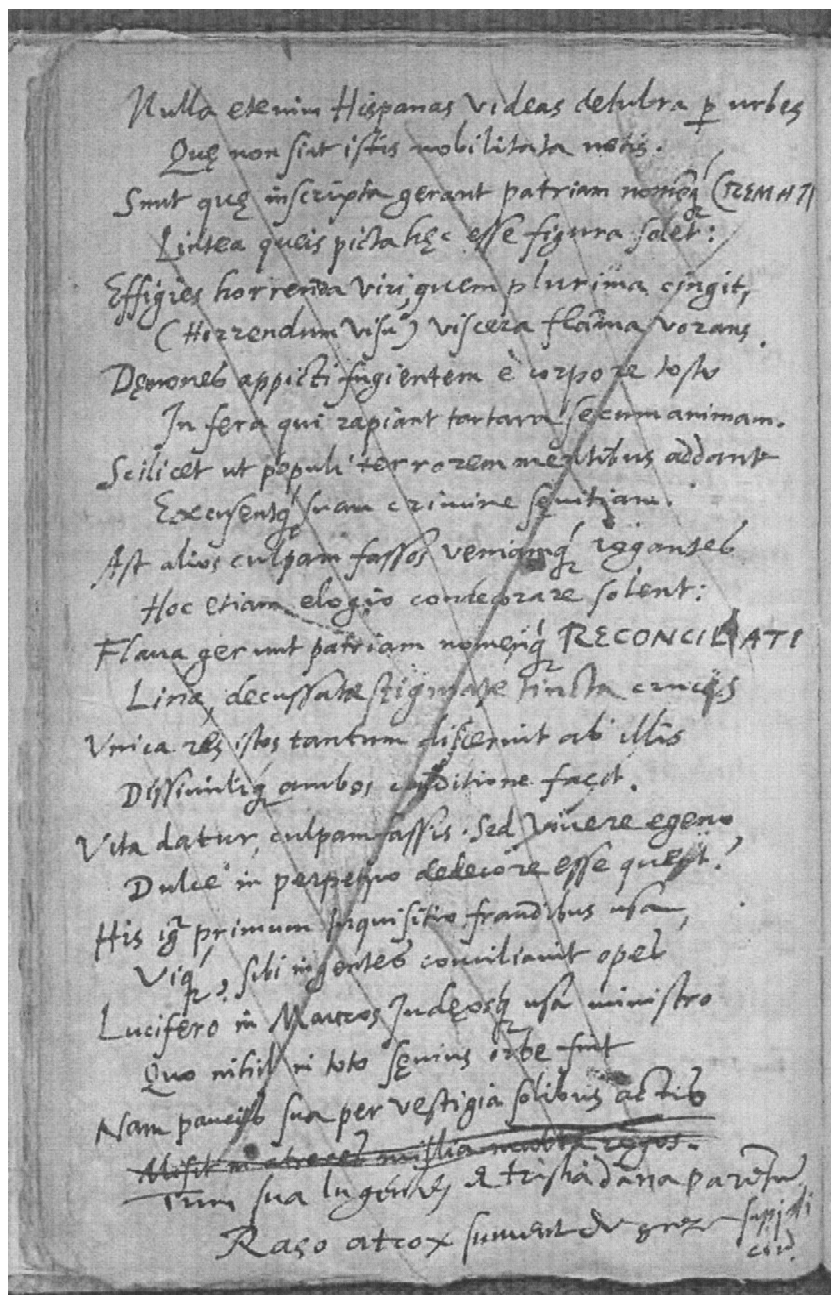 Nulla etenim Hispanas videas delubra p urbes
Quę non sint istis nobilitata notis.
Sunt quę inscripta gerant patriam nomenq́ CREMATI
Lintea queis picta hęc esse figura solet:
Effigies horrenda viri, quem plurima cingit,
(Horrendum visu) viscera flāma vorans.
Dęmones appicti fugientem è corpore tosto
In fera qui rapiant tartara secum animam.
Scilicet ut populi terrorem mentibus addant
Excusentq́ suam crimine sęvitiam.
Ast alios culpam fassos veniamq́ rogantes
Hoc etiam elogio condecorare solent:
Flava gerunt patriam nomenq́ RECONCILIATI
Lina, decussatæ stigmate tincta crucis
Unica res istos tantum discernit ab illis
Dissimiliq́ ambos conditione facit.
Vita datur, culpam fassis. Sed vivere egeno
Dulce in perpetuo dedecore esse queat?
His igr̃ primum Inquisitio fraudibus usa,
Viq́, sibi ingentes conciliavit opes
Lucifero in Mauros Judęosq́ usa ministro
Quo nihil in toto sęvius orbe fuit
Nam paucis sua per vestigia solibus actis
Misit in atroces millia multa rogos.
Tum sua lugentes & tristia dāna
Raso atrox sumunt de grege